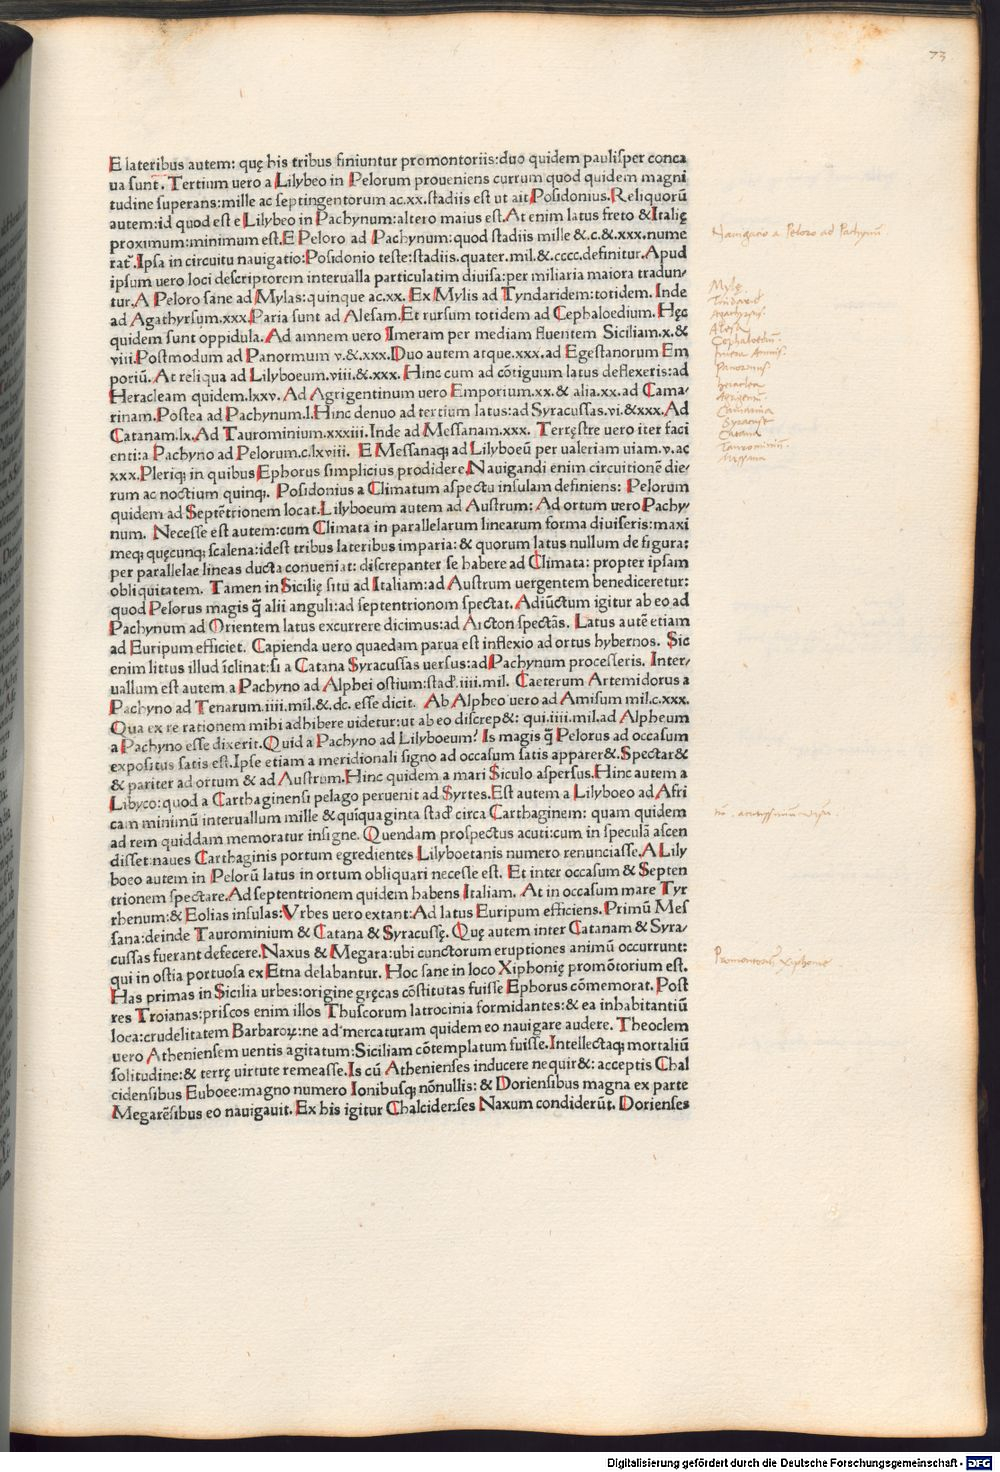 73
E lateribus autem: quę his tribus finiuntur promontoriis:duo quidem paulisper conca
ua sunt. Tertium uero a Lilybeo in Pelorum proueniens currum quod quidem magni
tudine superans:mille ac septingentorum ac.xx.stadiis est ut ait Posidonius.Reliquorū
autem:id quod est e Lilybeo in Pachynum:altero maius est.At enim latus freto & Italię
proximum:minimum est.E Peloro ad Pachynum:quod stadiis mille &.c.&.xxx.nume
rat᷑.Ipsa in circuitu nauigatio:Posidonio teste:stadiis.quater.mil.&.cccc.definitur.Apud
ipsum uero loci descriptorem interualla particulatim diuisa:per miliaria maiora tradun/
tur.A Peloro sane ad Mylas:quinque ac.xx. Ex Mylis ad Tyndaridem:totidem. Inde
ad Agathyrsum.xxx.Paria sunt ad Alesam.Et rursum totidem ad Cephaloedium. Hęc
quidem sunt oppidula. Ad amnem uero Imeram per mediam fluentem Siciliam.x.&
viii.Postmodum ad Panormum v.&.xxx.Duo autem atque.xxx.ad Egestanorum Em
poriū. At reliqua ad Lilyboeum.viii.&.xxx. Hinc cum ad cōtiguum latus deflexeris:ad
Heracleam quidem.lxxv. Ad Agrigentinum uero Emporium.xx.& alia.xx.ad Cama/
rinam. Postea ad Pachynum.l.Hinc denuo ad tertium latus:ad Syracussas.vi.&xxx.Ad
Catanam.lx.Ad Taurominium.xxxiii. Inde ad Messanam.xxx. Terręstre uero iter faci
enti:a Pachyno ad Pelorum.c.lxviii. E Messanaq; ad Lilyboeū per ualeriam uiam.v.ac
xxx.Pleriq; in quibus Ephorus simplicius prodidere.Nauigandi enim circuitionē die/
rum ac noctium quinq;. Posidonius a Climatum aspectu insulam definiens: Pelorum
quidem ad Septētrionem locat.Lilyboeum autem ad Austrum: Ad ortum uero Pachy/
num. Necesse est autem:cum Climata in parallelarum linearum forma diuiseris:maxi
meq; quęcunq; scalena:idest tribus lateribus imparia:& quorum latus nullum de figura:
per parallelae lineas ducta conueniat: discrepanter se habere ad Climata: propter ipsam
obliquitatem. Tamen in Sicilię situ ad Italiam:ad Austrum uergentem benediceretur:
quod Pelorus magis q̄ alii anguli:ad septentrionom spectat. Adiūctum igitur ab eo ad
Pachynum ad Orientem latus excurrere dicimus:ad Arcton spectās. Latus autē etiam
ad Euripum efficiet. Capienda uero quaedam parua est inflexio ad ortus hybernos. Sic
enim littus illud iclinat:si a Catana Syracussas uersus:ad Pachynum processeris. Inter/
uallum est autem a Pachyno ad Alphei ostium:stad.iiii.mil. Caeterum Artemidorus a
Pachyno ad Tenarum.iiii.mil.&.dc. esse dicit. Ab Alpheo uero ad Amisum mil.c.xxx.
Qua ex re rationem mihi adhibere uidetur:ut ab eo discrep&: qui.iiii.mil.ad Alpheum
a Pachyno esse dixerit.Quid a Pachyno ad Lilyboeum? Is magis q̄ Pelorus ad occasum
expositus satis est.Ipse etiam a meridionali signo ad occasum satis apparer&.Spectar&
& pariter ad ortum & ad Austrum.Hinc quidem a mari Siculo aspersus.Hinc autem a
Libyco:quod a Carthaginensi pelago peruenit ad Syrtes.Est autem a Lilyboeo ad Afri
cam minimū interuallum mille & quiquaginta stad circa Carthaginem: quam quidem
ad rem quiddam memoratur insigne. Quendam prospectus acuti:cum in speculā ascen
disset:naues Carthaginis portum egredientes Lilyboetanis numero renunciasse.A Lily
boeo autem in Pelorū latus in ortum obliquari necesse est. Et inter occasum & Septen
trionem spectare.Ad septentrionem quidem habens Italiam. At in occasum mare Tyr
rhenum:& Eolias insulas:Vrbes uero extant:Ad latus Euripum efficiens.Primū Mes
sana:deinde Taurominium & Catana & Syracussę. Quę autem inter Catanam & Syra/
cussas fuerant defecere.Naxus & Megara:ubi cunctorum eruptiones animū occurrunt:
qui in ostia portuosa ex Etna delabantur. Hoc sane in loco Xiphonię promōtorium est.
Has primas in Sicilia urbes:origine gręcas cōstitutas fuisse Ephorus cōmemorat. Post
res Troianas:priscos enim illos Thuscorum latrocinia formidantes:& ea inhabitantiū
loca:crudelitatem Barbaroꝝ:ne ad mercaturam quidem eo nauigare audere. Theoclem
uero Atheniensem uentis agitatum:Siciliam cōtemplatum fuisse.Intellectaq; mortaliū
solitudine:& terrę uirtute remeasse.Is cū Athenienses inducere nequir&: acceptis Chal
cidensibus Euboee:magno numero Ionibusq; nōnullis: & Doriensibus magna ex parte
Megarēsibus eo nauigauit. Ex his igitur Chalcidenses Naxum condiderūt. Dorienses
Nauigatio a Peloro ad Pachynū.
Mylę.
Tindaris
Agathyrsus.
Alesa
Cephaloedium.
Imera Amnis.
Panormus
heraclea
Agrigentū.
Camarina
Syracuse
Catana
Taurominiū.
Messana
acutissimum
Promontoriū Xiphonie
Digitalisierung gefördert durch die Deutsche Forschungsgemeinschaft - DFG